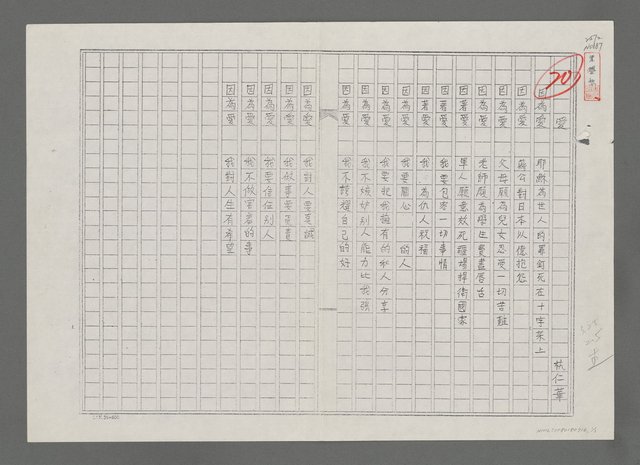 愛
林仁華
因為愛 耶穌為世人的罪釘死在十字架上
因為愛 蔣公對日本以德抱怨
因為愛 父母願為兒女忍受一切苦難
因為愛 老師願為學生費盡唇舌
因著愛 軍人願意效死疆場捍衛國家
因著愛 我要包容一切事情
因著愛 我為仇人祝福
因為愛 我要關心 的人
因為愛 我要把我擁有的和人分享
因為愛 我不嫉妒別人能力比我強
因為愛 我不誇耀自己的好
因為愛 我對人要真誠
因為愛 我做事要負責
因為愛 我要信任別人
因為愛 我不做害羞的事
因為愛 我對人生有希望
20